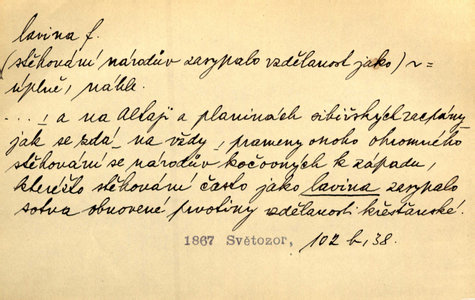 lavina f.
(stěhování národův zasypalo vzdělanost jako) ~ =
úplně, náhle.
...., a na Altaji a planinách sibiřských zacpány,
jak se zdá, na vždy, prameny onoho ohromného
stěhování se národův kočovných k západu,
kteréžto stěhování často jako lavina zasypalo
sotva obnovené prvotiny vzdělanosti křesťanské.
1867 Světozor, 102 b, 38.